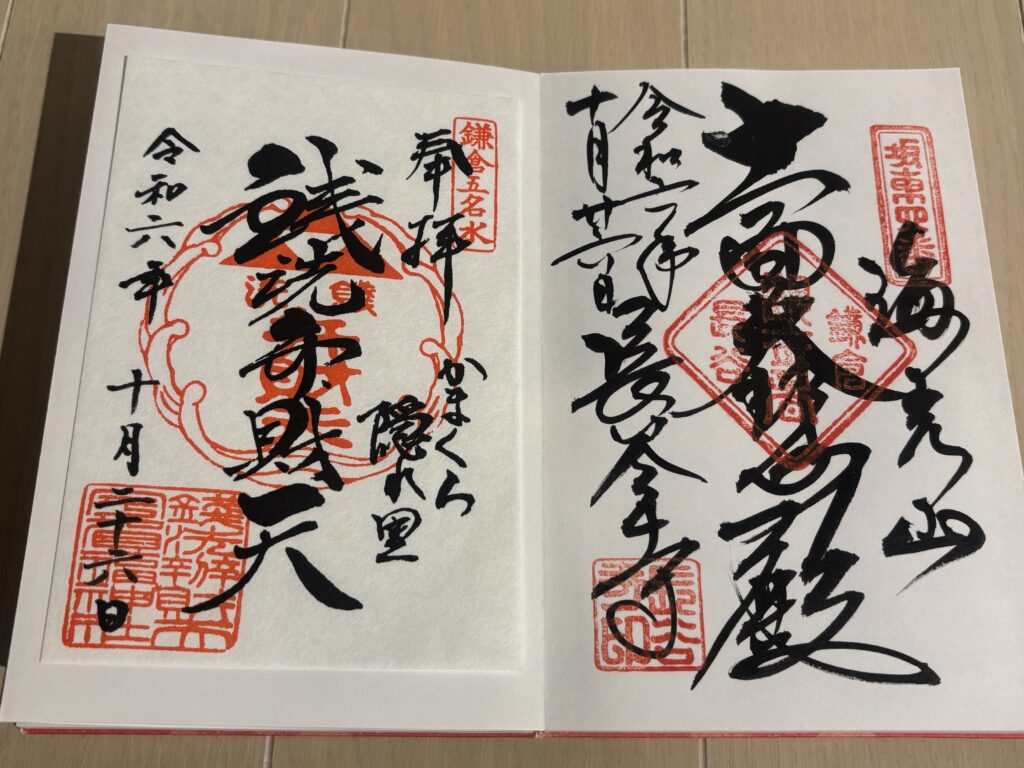 坂東四番
海光山
十一面大悲殿
鎌倉
長谷
令和六年
十月廿六日
長谷寺
鎌倉五名水
奉拝
かまくら
隠れ里
銭洗弁財天
令和六年
十月二十六日